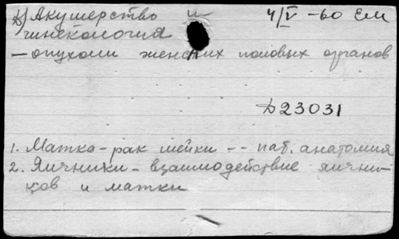 Акушерство и 4/V-60 ЕМ
гинекология
— опухоли женских половых органов
Д23031
1. Матка - рак шейки -- пат. анатомия
2. Яичники - взаимодействие яични-
ков и матки